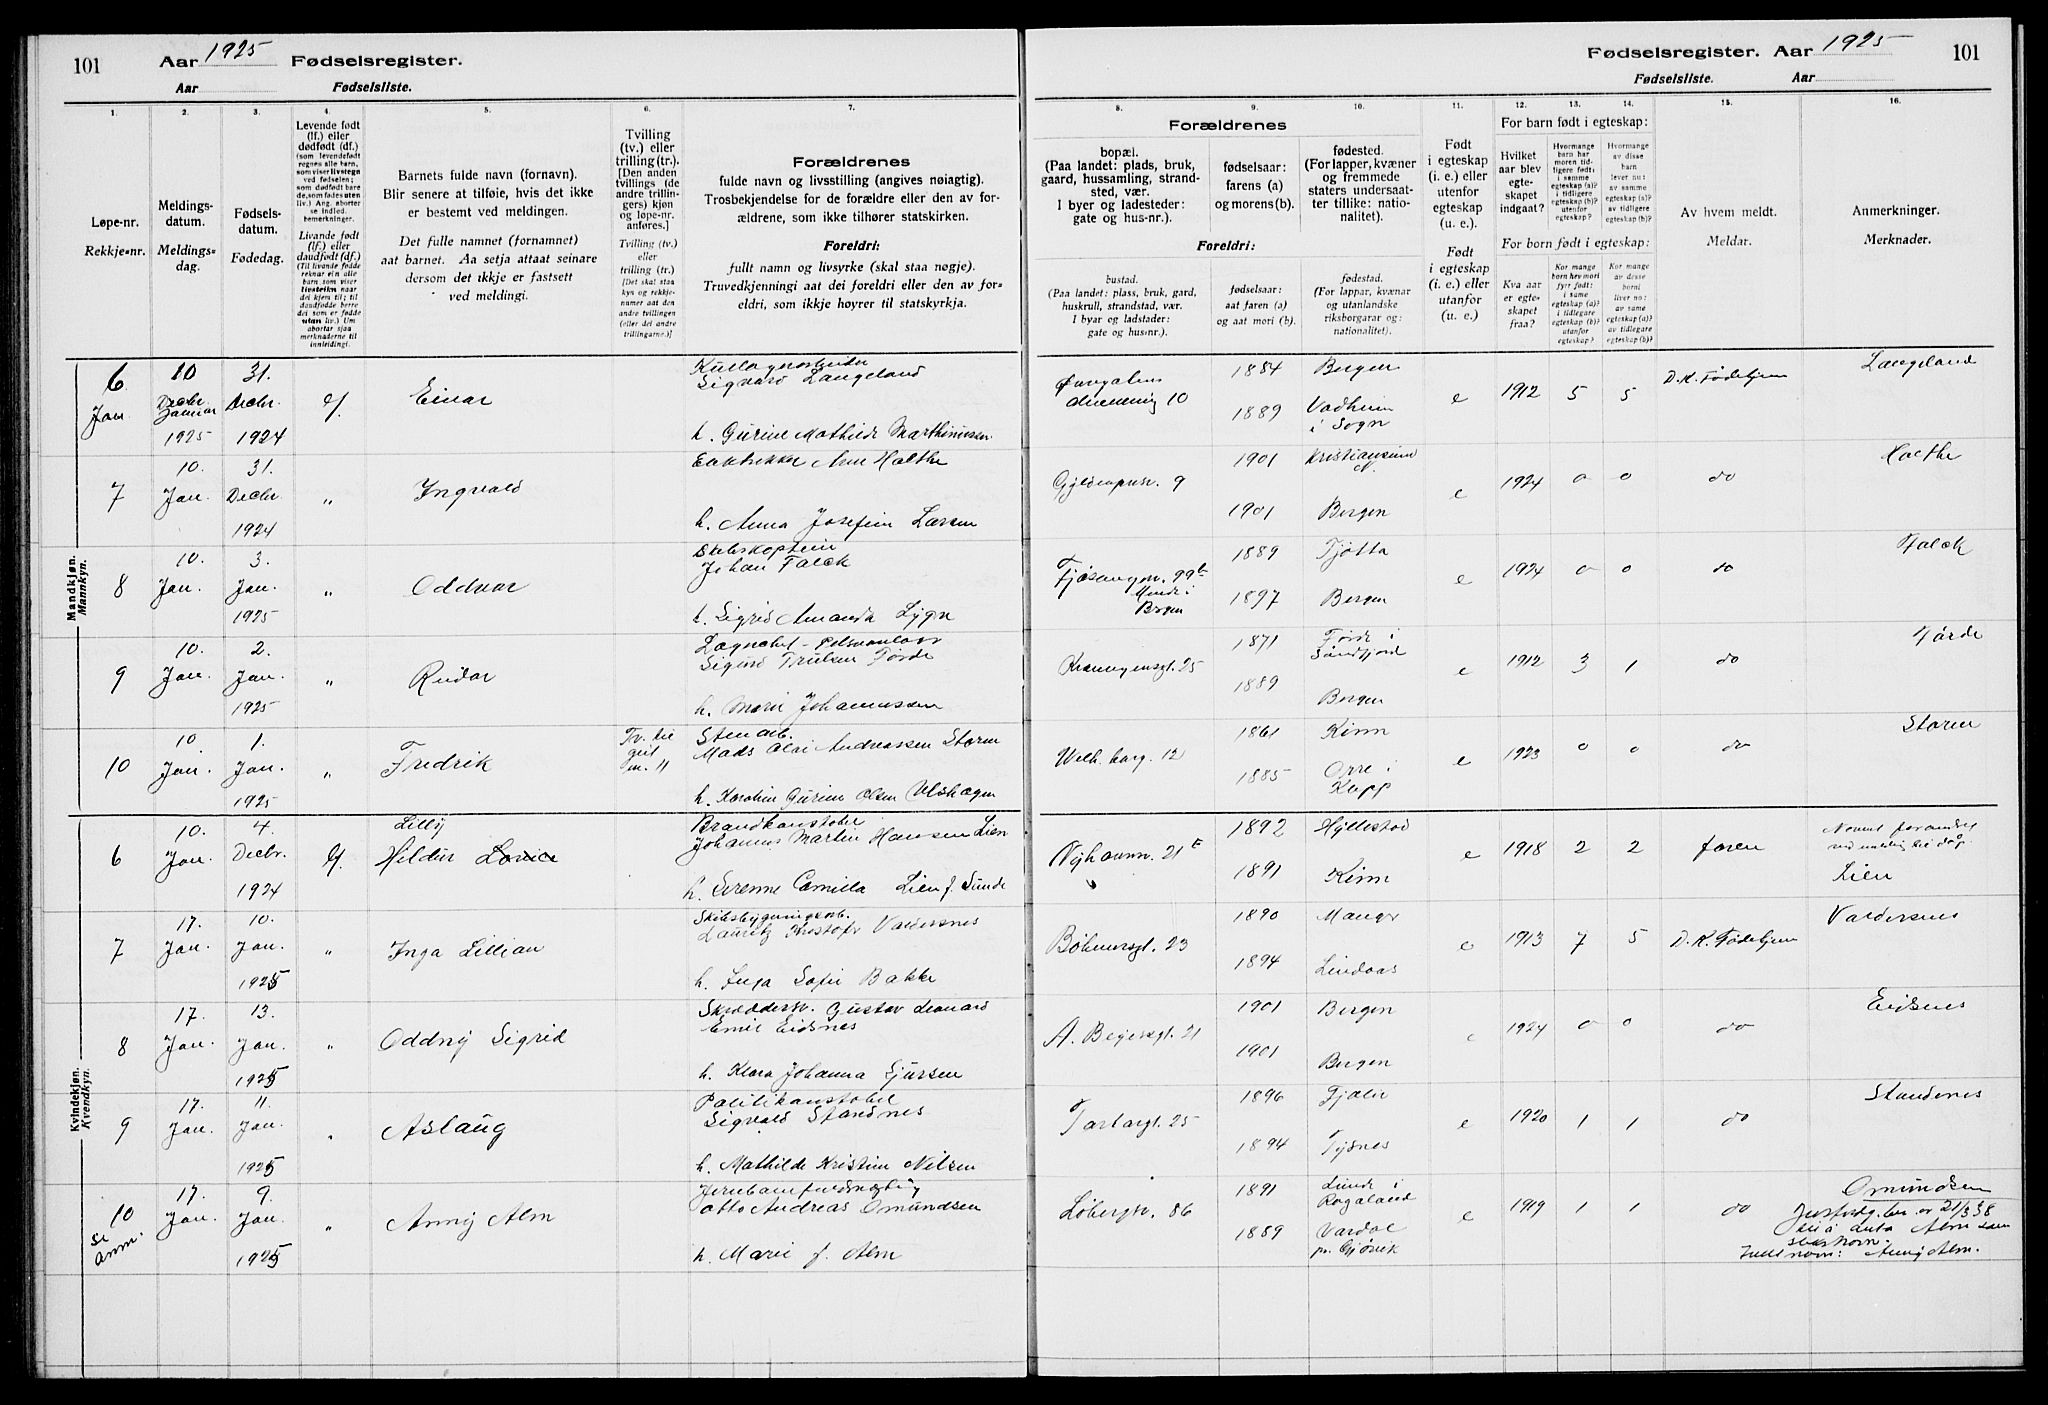 101 Aar 1925 Fødselsregister.
Aar Fødselsliste.
1. 2. 3. 4. 5. 6. 7.
Løpe-nr.
Rekkje-nr.
Meldings-
datum.
Meldings-
dag.
Fødsels-
datum.
Fødedag.
Levende født
(lf.) eller
dødfødt (df.)
(som levendefødt
regnes alle barn,
som viser livstegn
ved fødselen;
som dødfødt bare
de, som fødes uten
liv.) Ang. aborter
se indled.
bemerkninger.
Livande fødd
(lf.) eller
daudfødd (df.)
(Til livande fødde
reknar ein alle
born som viser
livsteikn naar
dei kjem til; til
daudfødde berre
dei som er fødde
utan liv.) Um
abortar sjaa
merknaderne til
innleiding).
Barnets fulde navn (fornavn).
Blir senere at tilføie, hvis det ikke
er bestemt ved meldingen.
Det fulle namnet (fornamnet)
aat barnet. Aa setja attaat seinare
dersom det ikkje er fastsett
ved meldingi.
Tvilling
(tv.) eller
trilling (tr.).
[Den anden
tvillings (de
andre trillin-
gers) kjøn
og løpe-nr.
anføres.]
Tvilling (tv.)
eller
trilling (tr.)
[Det skal staa
kyn og rekkje-
numer aat den
andre tvillingen
(eller dei andre
trillingarne.)]
Forældrenes
fulde navn og livsstilling (angives nøiagtig).
Trosbekjendelse for de forældre eller den av for-
ældrene, som ikke tilhører statskirken.
Foreldri:
fullt namn og livsyrke (skal staa nøgje).
Truvedkjenningi aat dei foreldri eller den av for-
eldri, som ikkje høyrer til statskyrkja.
Mandkjøn.
Mannkyn.
6 Jan. 10 Decbr. Januar 1925 31. Decbr. 1924 lf. Einar
Sigvard Langeland
h. Gurine Mathilde Marthinussen
7 10. Jan. 31. Decbr. 1924 " Ingvald
Arne Holthe
h. Anna Josefine Larsen
8 10. Jan. 3. Jan. 1925 " Oddvar
Johan Falck
h. Sigrid Amanda Lygre
9 10. Jan. 2. Jan. 1925 " Reidar
Sigurd Trulsen Førde
h. Marie Johannessen
10 10. Jan. 1. Jan. 1925 " Fredrik Tv. til n. 11
Stenarb.
Mads Olai Andreassen Støren
h. Karoline Gurine Olsen Ulshagen
Kvindekjøn.
Kvendkyn.
6 10. Jan. 4. Decbr. 1924 lf. Lilly
Hildur
Brandkonstabel
Johannes Martin Hansen Lien
h. Serenne Camilla Lien f. Sunde
7 17. Jan. 10. Jan. 1925 " Inga Lillian
Skibsbygningsarb.
Lauritz Kristofer Valdersnes
h. Inga Sofie Bakke
8 17. Jan. 13. Jan. 1925 " Oddny Sigrid
Skræddersv. Gustav Leonard
Emil Eidsnes
h. Klara Johanna Sjursen
9 17. Jan. 11. Jan. 1925 " Aslaug
Politikonstabel
Sigvald Standnes
h. Mathilde Kristine Nilsen
10 17. Jan. 9. Jan. 1925 " Anny Alm
se anm.
Jernbanefuldmægtig
Otto Andreas Omundsen
h. Marie f. Alm
Fødselsregister. Aar 1925 101
Fødselsliste. Aar
8. 9. 10. 11. 12. 13. 14. 15. 16.
Forældrenes
bopæl.
(Paa landet: plads, bruk,
gaard, hussamling, strand-
sted, vær.
I byer og ladesteder:
gate og hus-nr.).
fødselsaar:
farens (a)
og morens (b).
fødested.
(For lapper, kvæner
og fremmede
staters undersaat-
ter tillike: natio-
nalitet).
Foreldri:
bustad.
(Paa landet: plass, bruk, gard,
huskrull, strandstad, vær.
I byar og ladstader:
gate og hus-nr.).
fødselsaar:
aat faren (a)
og aat mori (b).
fødestad.
(For lappar, kvænar
og utanlandske
riksborgarar og:
nationalitet).
Født
i egteskap
(i. e.) eller
utenfor
egteskap
(u. e.).
Født
i egteskap
(i. e.) eller
utanfor
(u. e.)
For barn født i egteskap:
Hvilket
aar blev
egte-
skapet
indgaat?
Hvormange
barn har
moren tid-
ligere født:
i samme
egteskap (a)?
i tidligere
egteskap (b)?
utenfor
egteskap?
Hvormange
av disse
barn
lever nu:
av samme
egteskap (a)?
av tidligere
egteskap (b)?
For born født i egteskap:
Kva aar
er egte-
skapet
fraa?
Kor mange
born hev mori
fyrr født:
i same
egteskap (a)?
i tidlegare
egteskap (b)?
utanfor
egteskap?
Kor mange
av disse
borni
liver no:
av same
egteskap (a)?
av tidlegare
egteskap (b)?
Av hvem meldt.
Meldar.
Anmerkninger.
Merknader.
10 1884 Bergen 1889 Vadheim i Sogn e 1912 5 5 D. K. Fødehjem Langeland
9 1901 Kristiansund N. 1901 Bergen e 1924 0 0 do Holthe
Fjøsangvn. 99b Minde i Bergen 1889 Tjøtta 1897 Bergen e 1924 0 0 do Falck
25 1871 Førde i Søndfjord 1889 Bergen e 1912 3 1 do Førde
Welh. harg. 12 1861 Kinn 1885 Orre i Klepp e 1923 0 0 do Støren
Nyhavnv. 21 E 1892 Hyllestad 1891 Kinn e 1918 2 2 faren Navnet forandret
Lien
Bøhmersgt. 23 1890 Manger 1894 Lindaas e 1913 7 5 D. K. Fødehjem Valdersnes
A. Beyersgt. 21 1901 Bergen 1901 Bergen e 1924 0 0 do Eidsnes
Tartargt. 25 1896 Fjaler 1894 Tysnes e 1920 1 1 do Standnes
Løbergsv. 86 1891 Lunde i Rogaland 1889 Vardal pr. Gjøvik e 1919 1 1 do Omundsen
Justisdep. har av 21/3 38
till. å anta Alm som
slektsnavn.
Fulle navn: Anny Alm.